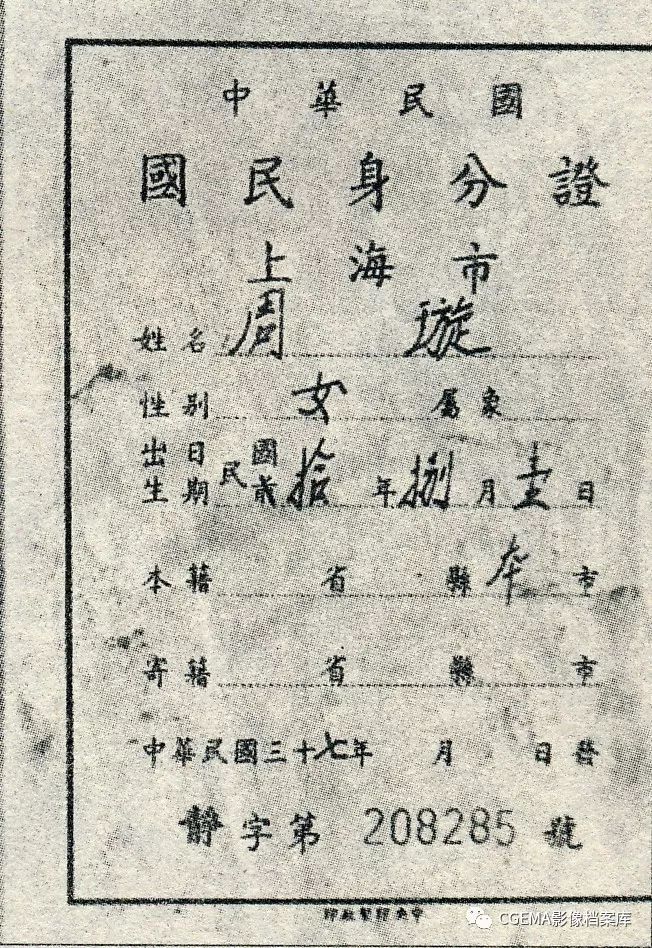 中華民國
國民身分證
上海市
姓名 周 璇
性別 女 屬象
出生日期 民國前 拾 年 捌 月 壹 日
本籍 省 縣 本 市
寄籍 省 縣 市
中華民國三十七年 月 日發
靜字第 208285 號
中央印製廠印
CGEMA影像档案库